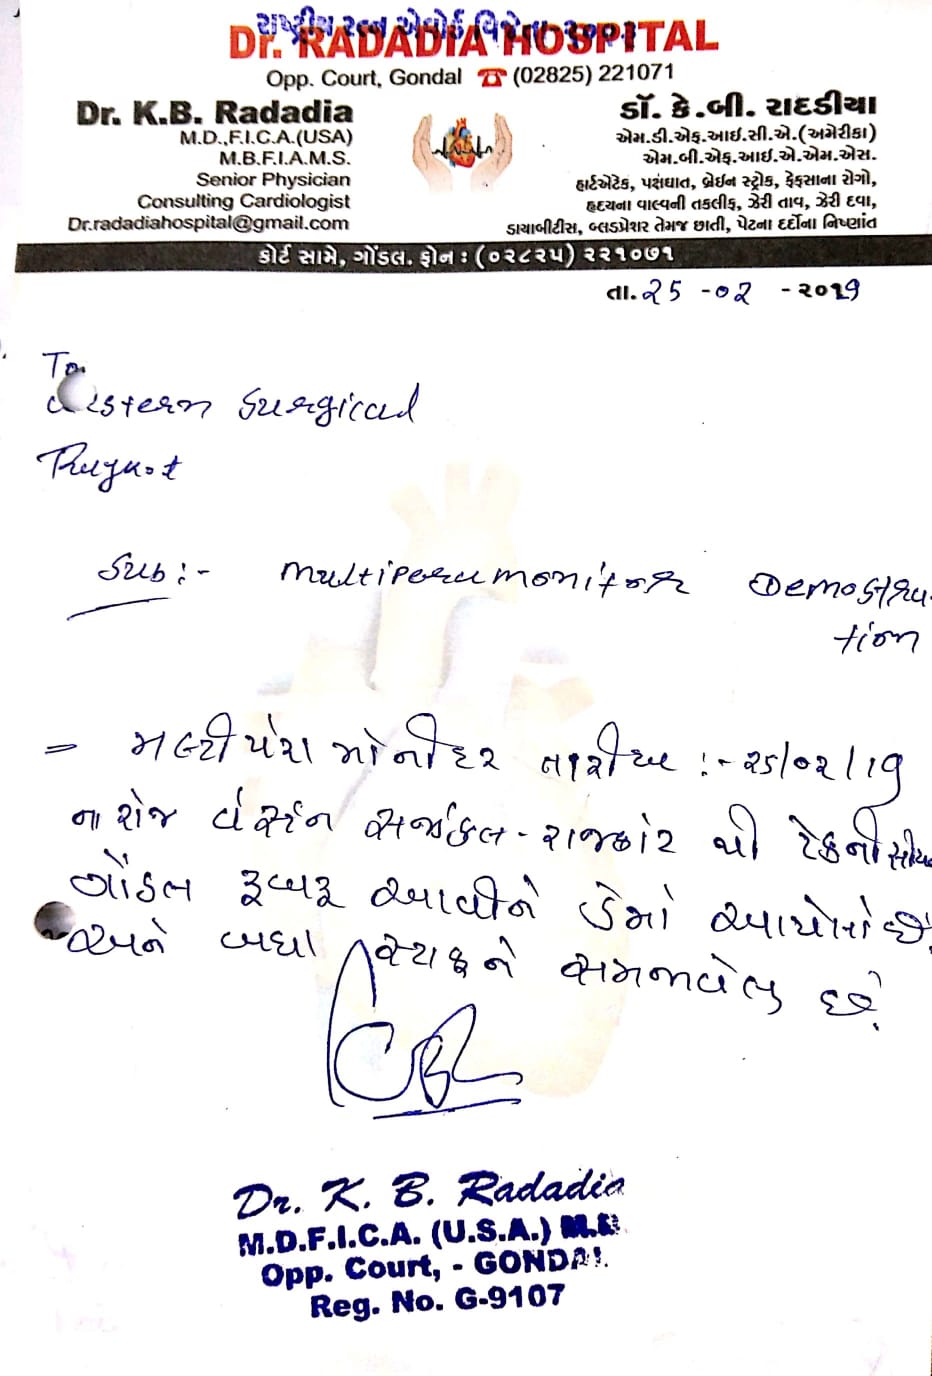 રાષ્ટ્રીય રત્ન એવોર્ડ વિજેતા
Dr. RADADIA HOSPITAL
Opp. Court, Gondal ☎ (02825) 221071
Dr. K.B. Radadia
M.D.,F.I.C.A.(USA)
M.B.F.I.A.M.S.
Senior Physician
Consulting Cardiologist
Dr.radadiahospital@gmail.com
ડૉ. કે.બી. રાદડીયા
એમ.ડી.એફ.આઇ.સી.એ.(અમેરીકા)
એમ.બી.એફ.આઇ.એ.એમ.એસ.
હાર્ટએટેક, પક્ષઘાત, બ્રેઇન સ્ટ્રોક, ફેફસાના રોગો,
હૃદયના વાલ્વની તકલીફ, ઝેરી તાવ, ઝેરી દવા,
ડાયાબીટીસ, બ્લડપ્રેશર તેમજ છાતી, પેટના દર્દોના નિષ્ણાંત
કોર્ટ સામે, ગોંડલ. ફોન : (૦૨૮૨૫) ૨૨૧૦૭૧
તા. 25 -02 -૨૦19
To
Western Surgical
Sub :- multipara monitor Demostra-
tion
= મલ્ટીપેરા મોનીટર તારીખ :- ૨૫/૦૨/19
ના રોજ વેસ્ટર્ન સર્જીકલ - રાજકોટ થી
ગોંડલ રૂબરૂ આવીને ડેમો આપેલો છે
અને બધા સ્ટાફને સમજાવેલ છે.
Dr. K. B. Radadia
M.D.F.I.C.A. (U.S.A.)
Opp. Court, - GONDAL
Reg. No. G-9107